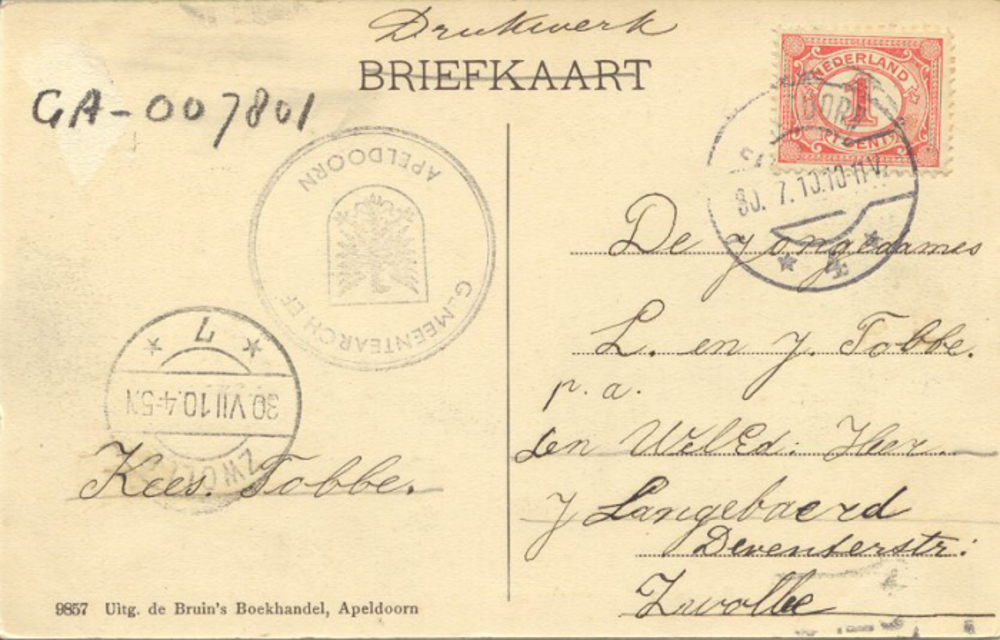 Drukwerk
BRIEFKAART
GA-007801
NEDERLAND
1
CENT
30. 7.10.10-11V.
4
GEMEENTEARCHIEF
APELDOORN
De Jongedames
L. en J. Tobbe.
p. a.
den WelEd: Heer
J Langebaerd
Deventerstr:
Zwolle
7
30.VII10.4-5N
ZWOLLE
Kees. Tobbe.
9857 Uitg. de Bruin's Boekhandel, Apeldoorn